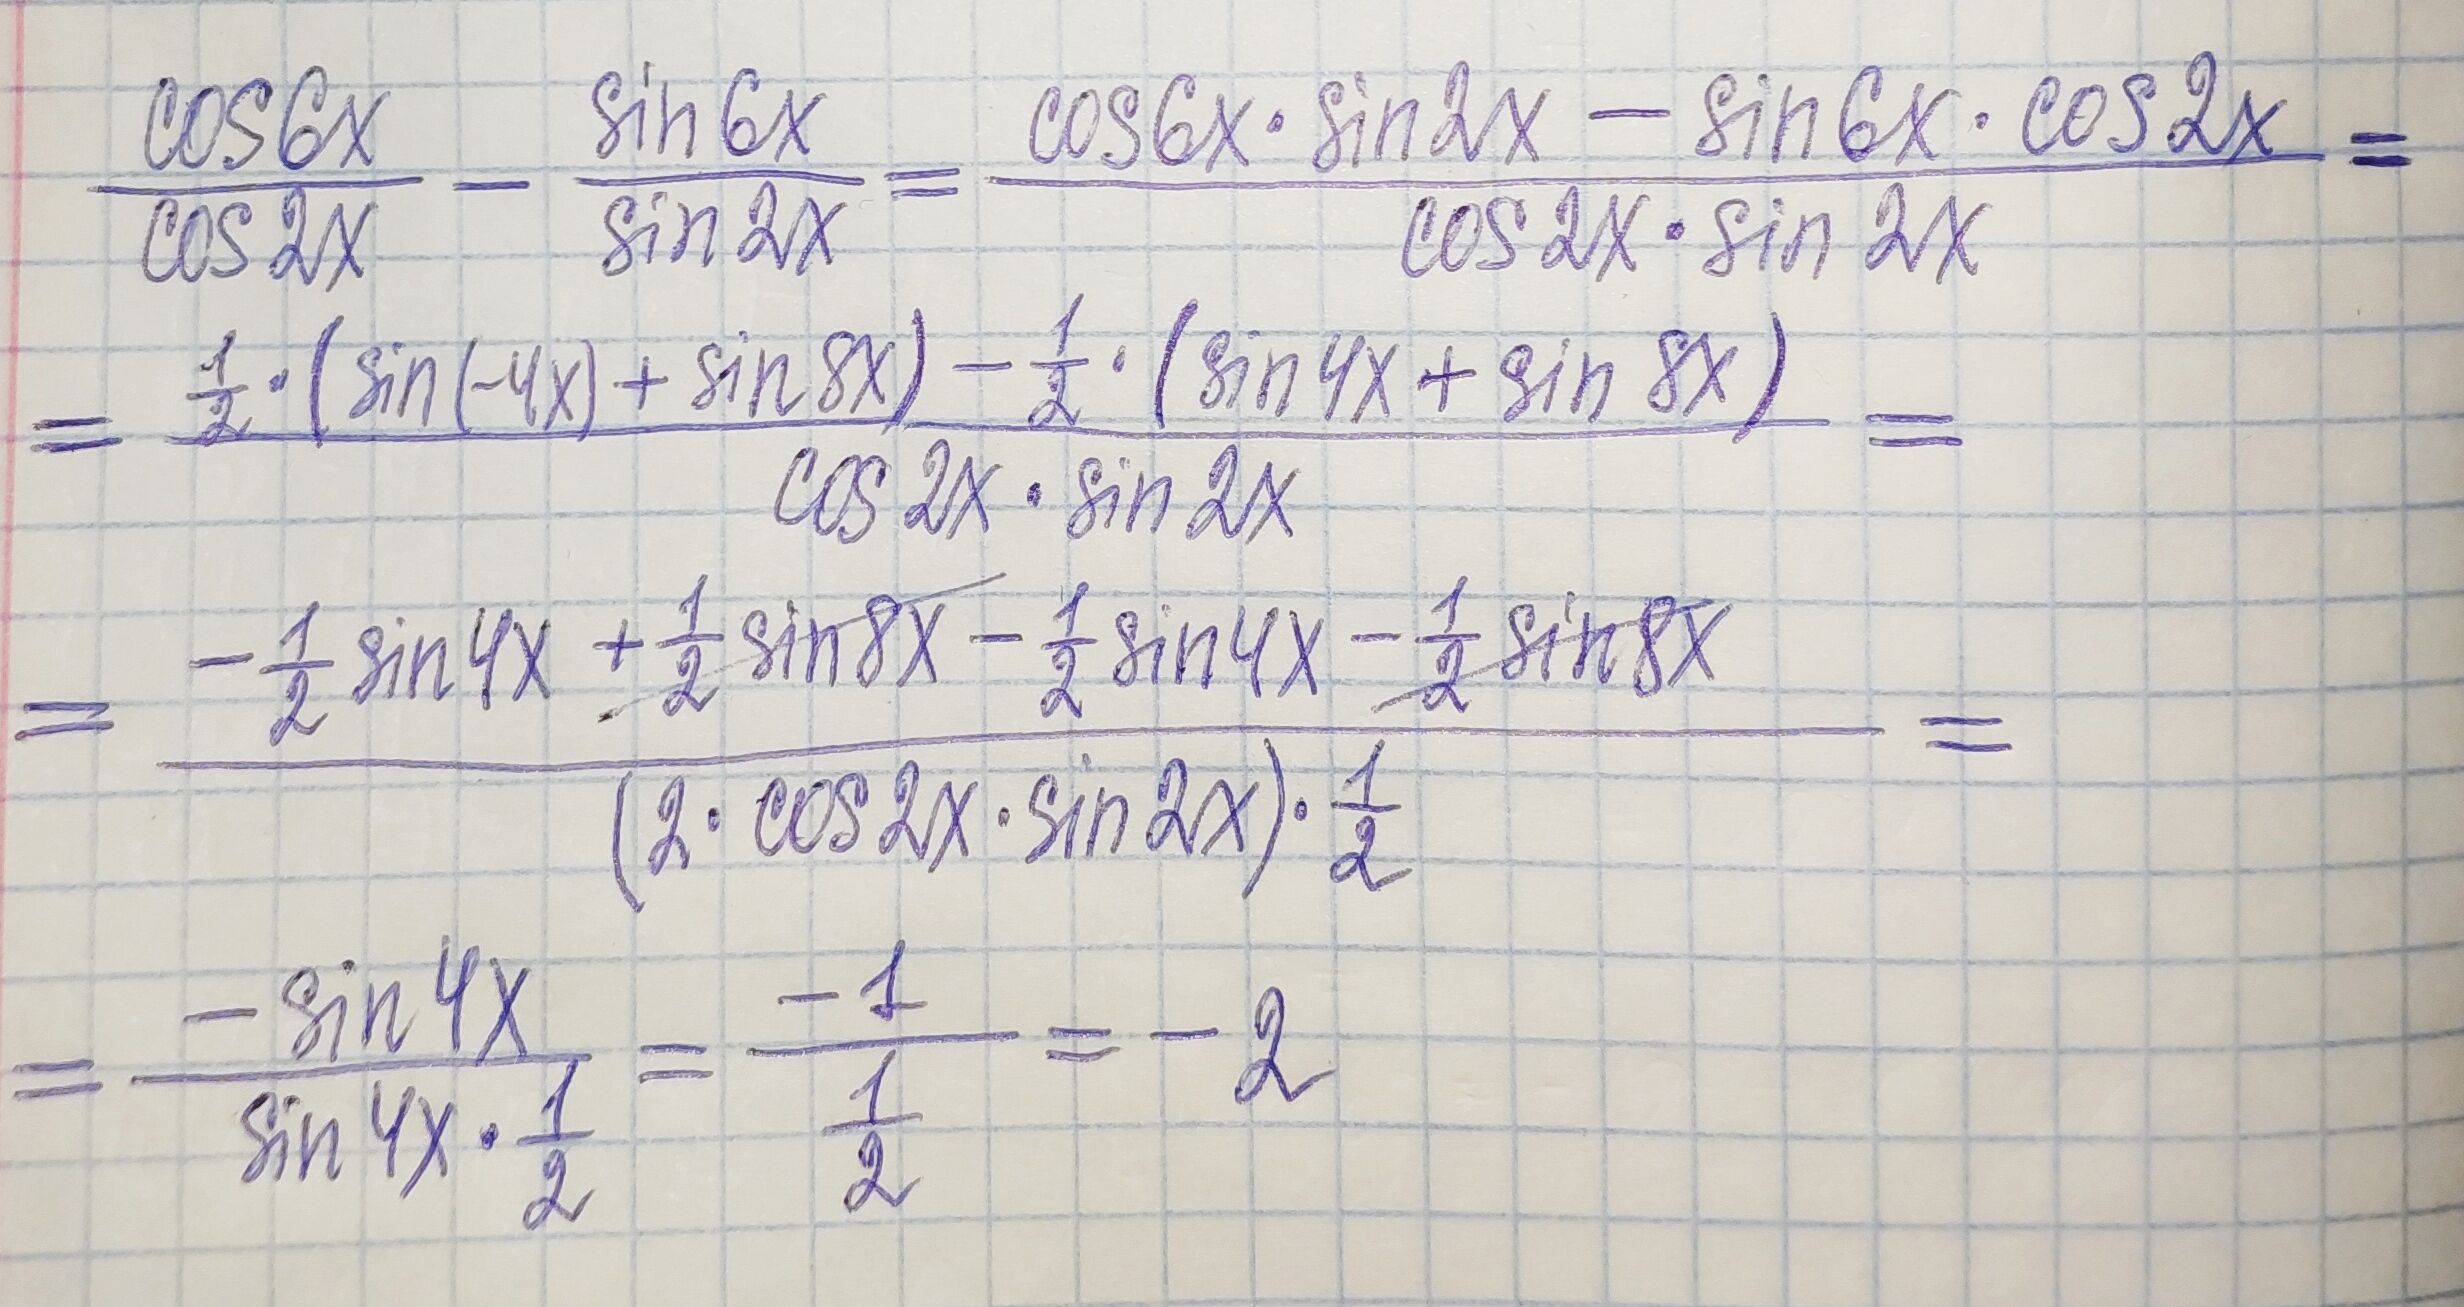 cos6x/cos2x - sin6x/sin2x = (cos6x·sin2x - sin6x·cos2x)/(cos2x·sin2x) =
= (1/2·(sin(-4x)+sin8x) - 1/2·(sin4x+sin8x))/(cos2x·sin2x) =
= (-1/2 sin4x + 1/2 sin8x - 1/2 sin4x - 1/2 sin8x)/((2·cos2x·sin2x)·1/2) =
= (-sin4x)/(sin4x·1/2) = (-1)/(1/2) = -2